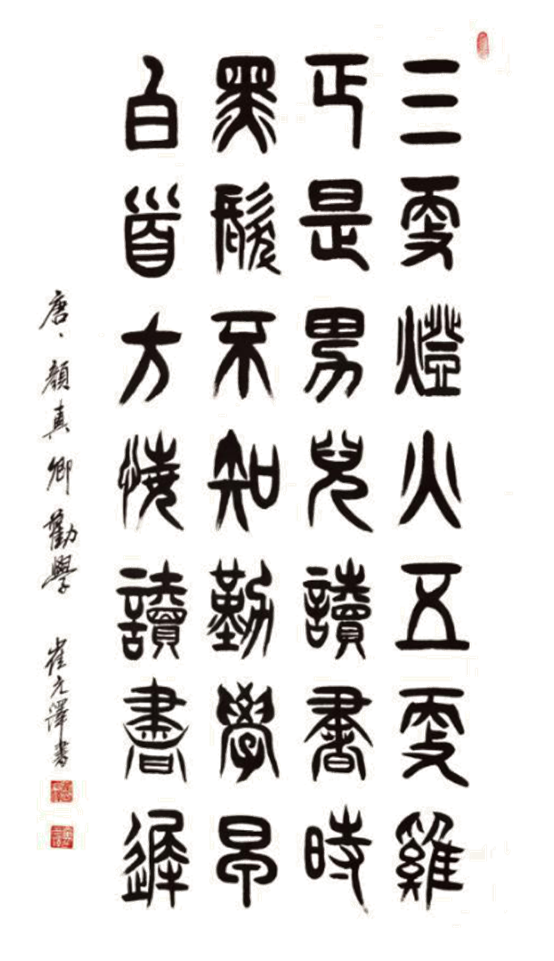 三更燈火五更雞
正是男兒讀書時
黑髮不知勤學早
白首方悔讀書遲
唐、顏真卿勸學 崔元澤書